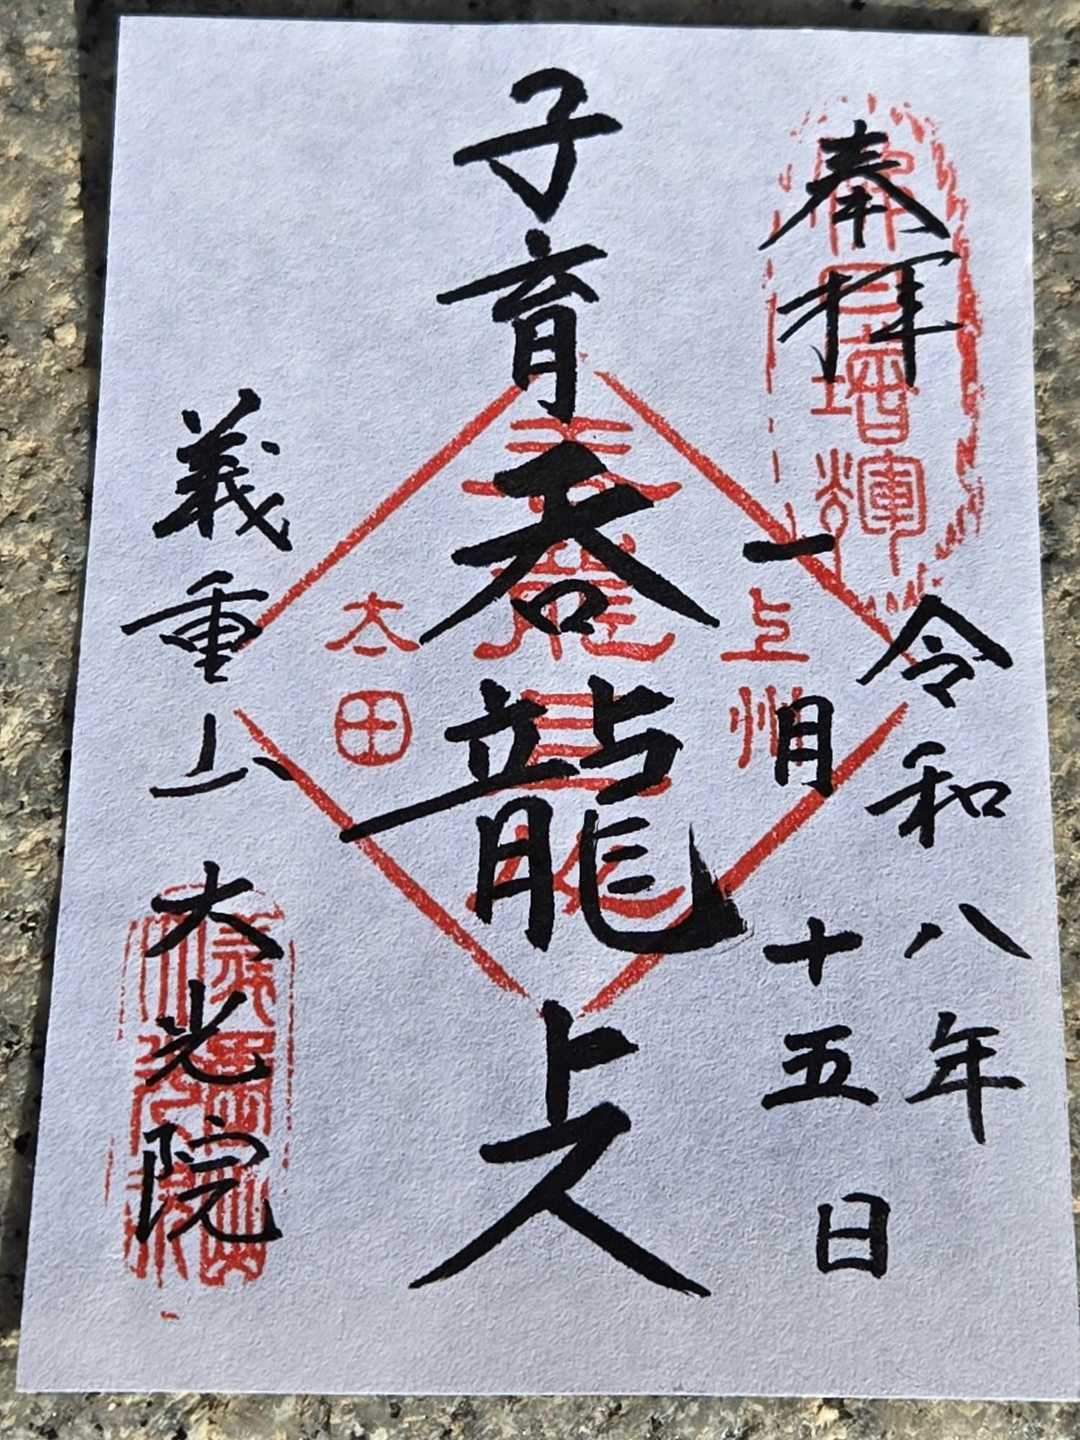 奉拝
令和八年
一月十五日
子育呑龍上人
上州
太田
義重山大光院